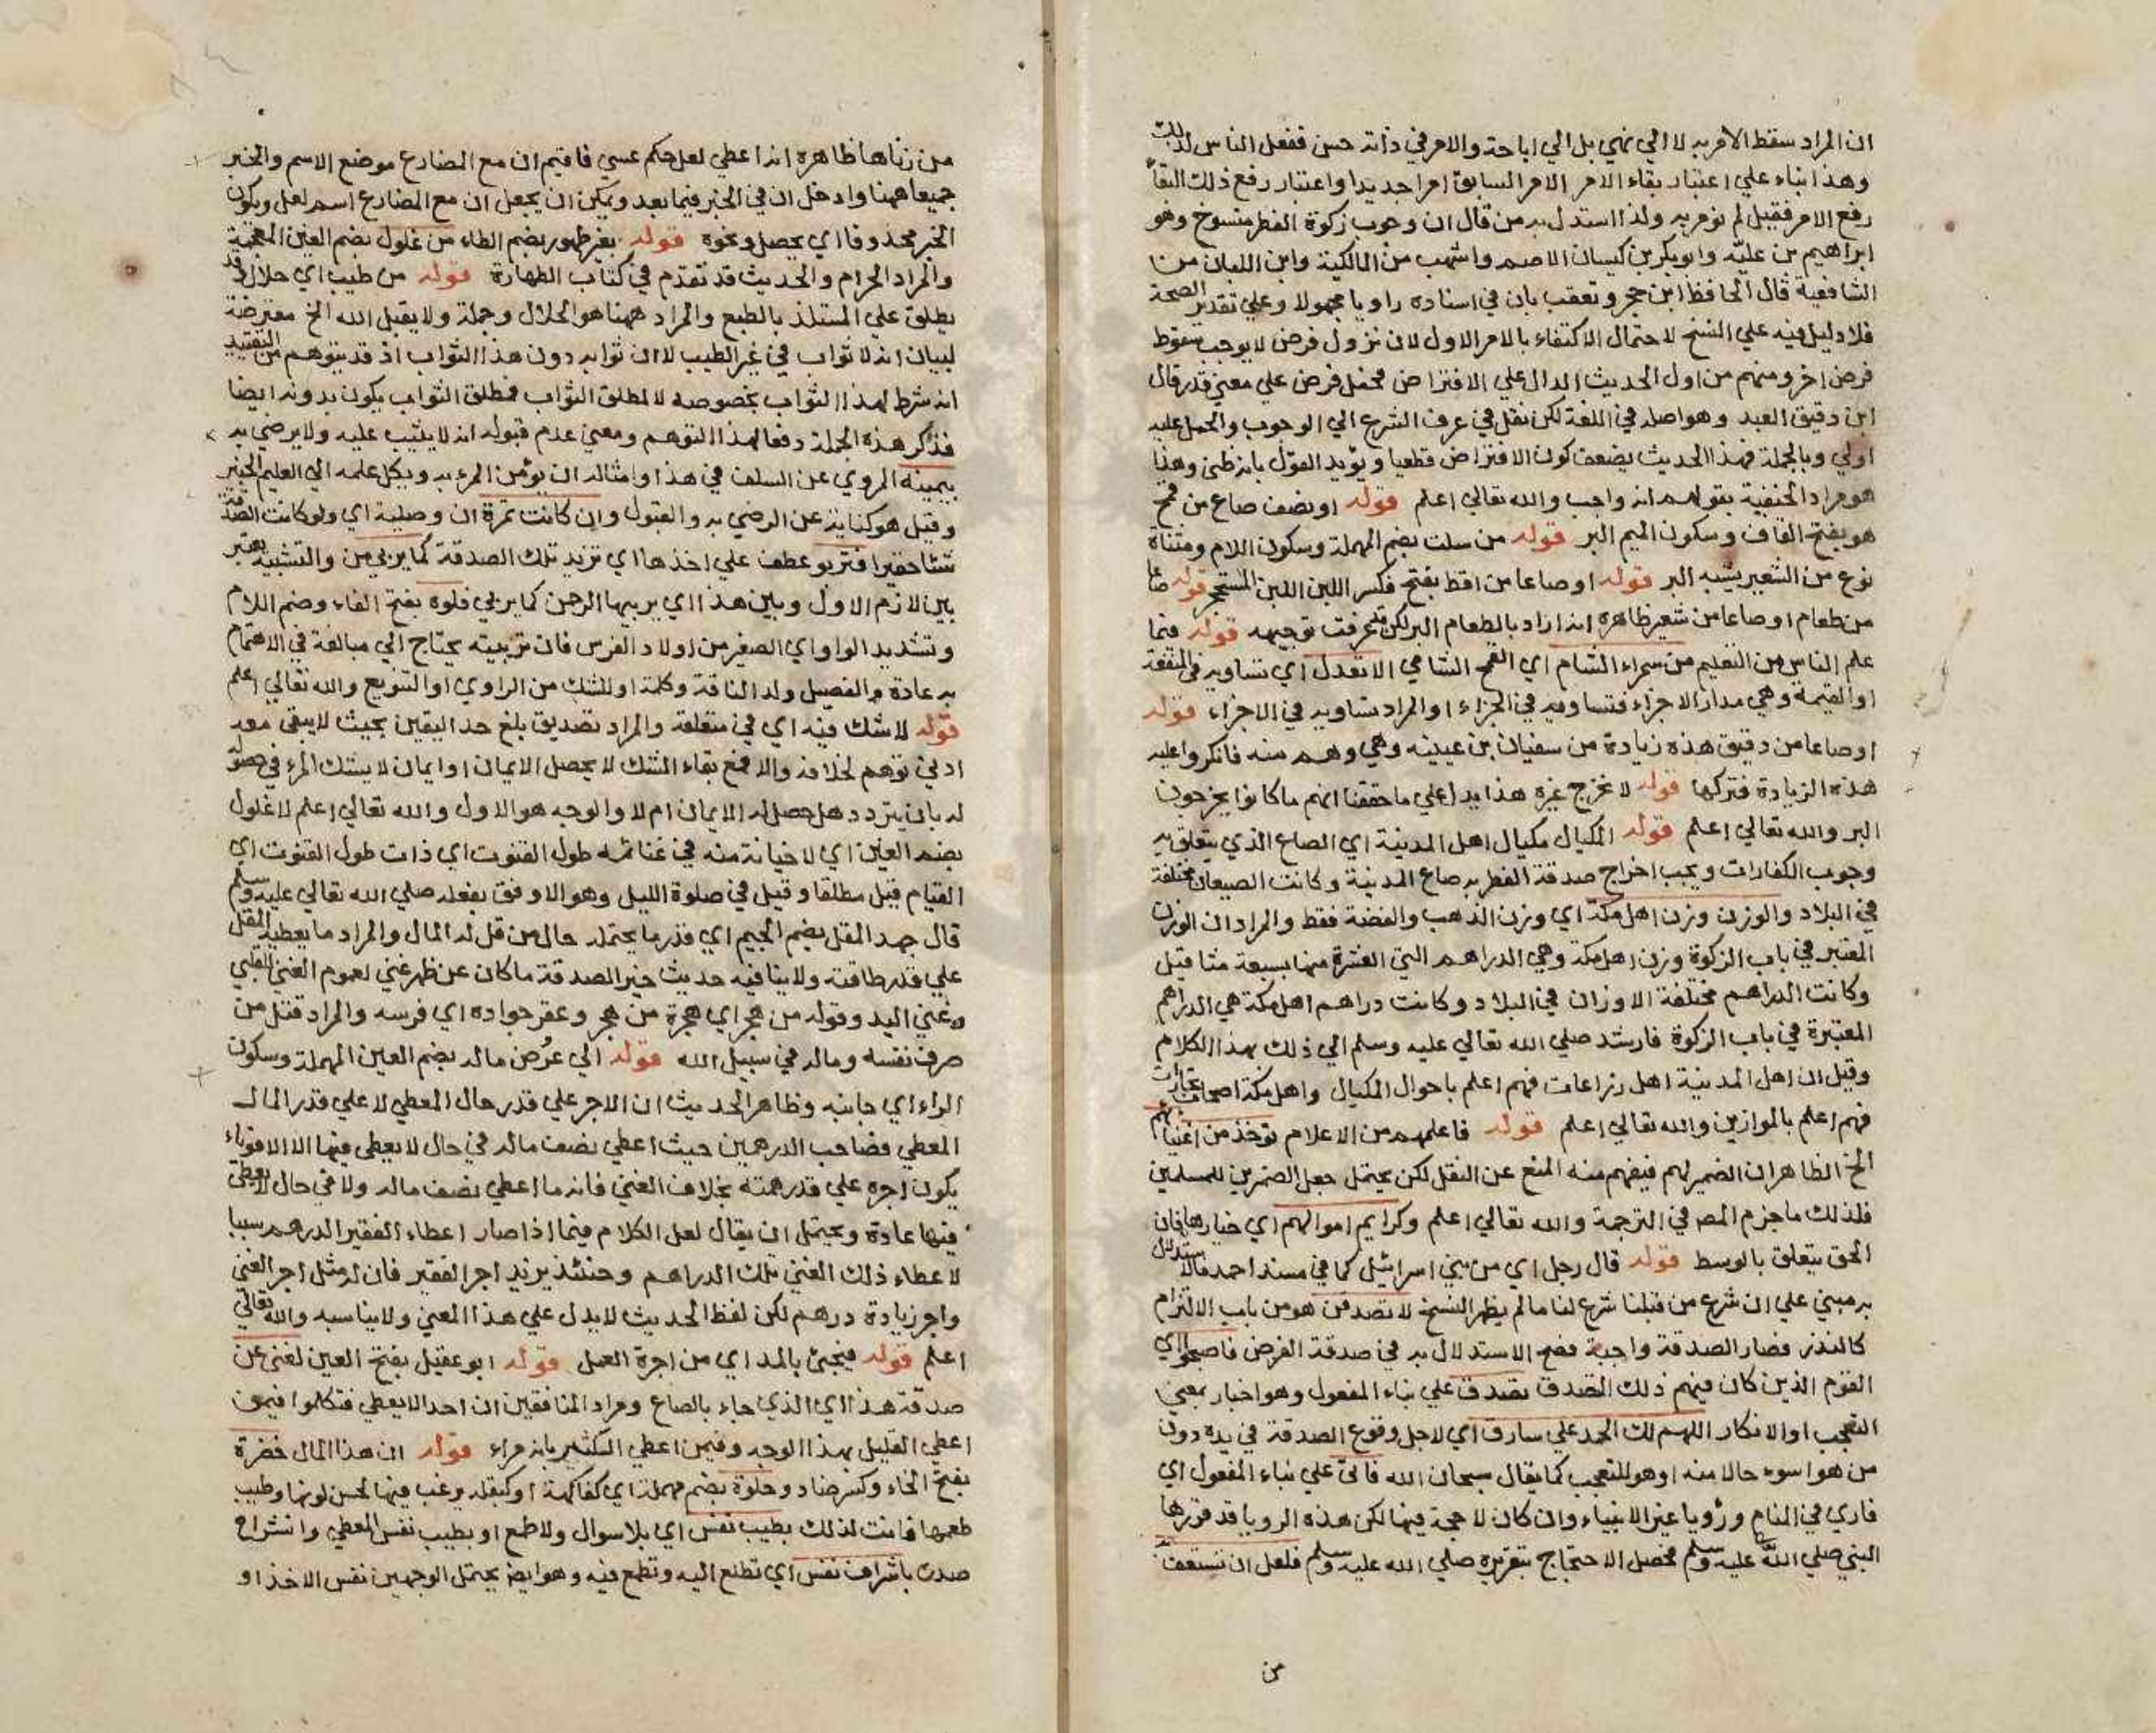 ان المراد سقط الامر به لا الي نهي بل الي اباحة والامر في ذاته حسن ففعل الناس لذلك
وهذا بناء علي اعتبار بقاء الامر الامر السابق امرا جديدا واعتبار رفع ذلك البقاء
رفع الامر فقيل لم نؤمر به ولذا استدل به من قال ان وجوب زكوة الفطر منسوخ وهو
ابراهيم بن علية وابو بكر بن كيسان الاصم واشهب من المالكية وابن اللبان من
الشافعية قال الحافظ ابن حجر وتعقب بان في اسناده راويا مجهولا وعلي تقدير الصحة
فلا دليل فيه علي النسخ لاحتمال الاكتفاء بالامر الاول لان نزول فرض لا يوجب سقوط
فرض اخر ومنهم من اول الحديث الدال علي الافتراض فحمل فرض علي معني قدر قال
ابن دقيق العيد وهو اصله في اللغة لكن نقل في عرف الشرع الي الوجوب والحمل عليه
اولي وبالجملة فهذا الحديث يضعف كون الافتراض قطعيا ويؤيد القول بانه ظني وهذا
هو مراد الحنفية بقولهم انه واجب والله تعالي اعلم قوله او نصف صاع من قمح
هو بفتح القاف وسكون الميم البر قوله من سلت بضم المهملة وسكون اللام ومثناة
نوع من الشعير يشبه البر قوله او صاعا من اقط بفتح فكسر اللبن اللبن المتحجر قوله صاعا
من طعام او صاعا من شعير ظاهره انه اراد بالطعام البر لكن قد عرفت توجيهه قوله فيما
علم الناس من التعليم من سمراء الشام اي القمح الشامي الا تعدل اي تساويه في المنفعة
او القيمة وهي مدار الاجزاء فتساويه في الجزاء او المراد تساويه في الاجزاء قوله
او صاعا من دقيق هذه زيادة من سفيان بن عيينه وهي وهم منه فانكروا عليه
هذه الزيادة فتركها قوله لا نخرج غيره هذا يدل علي ما حققنا انهم ما كانوا يخرجون
البر والله تعالي اعلم قوله المكيال مكيال اهل المدينة اي الصاع الذي يتعلق به
وجوب الكفارات ويجب اخراج صدقة الفطر به صاع المدينة وكانت الصيعان مختلفة
في البلاد والوزن وزن اهل مكة اي وزن الذهب والفضة فقط والمراد ان الوزن
المعتبر في باب الزكوة وزن اهل مكة وهي الدراهم التي العشرة منها بسبعة مثاقيل
وكانت الدراهم مختلفة الاوزان في البلاد وكانت دراهم اهل مكة هي الدراهم
المعتبرة في باب الزكوة فارشد صلي الله تعالي عليه وسلم الي ذلك بهذا الكلام
وقيل ان اهل المدينة اهل زراعات فهم اعلم باحوال المكيال واهل مكة اصحاب تجارات
فهم اعلم بالموازين والله تعالي اعلم قوله فاعلمهم من الاعلام تؤخذ من اغنيائهم
الخ الظاهر ان الضمير لهم فيفهم منه المنع عن النقل لكن يحتمل جعل الضميرين للمسلمين
فلذلك ما جزم المص في الترجمة والله تعالي اعلم وكرايم اموالهم اي خيارها فان
الحق يتعلق بالوسط قوله قال رجل اي من بني اسرائيل كما في مسند احمد فالاستدلال
به مبني علي ان شرع من قبلنا شرع لنا ما لم يظهر النسخ لاتصدقن هو من باب الالتزام
كالنذر فصار الصدقة واجبة فصح الاستدلال به في صدقة الفرض فاصبحوا اي
القوم الذين كان فيهم ذلك المتصدق تصدق علي بناء المفعول وهو اخبار بمعني
التعجب او الانكار اللهم لك الحمد علي سارق اي لاجل وقوع الصدقة في يده دون
من هو اسوء حالا منه او هو للتعجب كما يقال سبحان الله فاتي علي بناء المفعول اي
فاري في المنام ورؤيا غير الانبياء وان كان لا حجة فيها لكن هذه الرويا قد قررها
النبي صلي الله عليه وسلم فحصل الاحتجاج بتقريره صلي الله عليه وسلم فلعل ان تستعف به
من
من زناها ظاهره انه اعطي لعل حكم عسي فاقيم ان مع المضارع موضع الاسم والخبر
جميعا ههنا وادخل ان في الخبر فيما بعد ويمكن ان يجعل ان مع المضارع اسم لعل ويكون
الخبر محذوفا اي يحصل ونحوه قوله بغير طهور بضم الطاء من غلول بضم الغين المعجمة
والمراد الحرام والحديث قد تقدم في كتاب الطهارة قوله من طيب اي حلال وقد
يطلق علي المستلذ بالطبع والمراد ههنا هو الحلال وجملة ولا يقبل الله الخ معترضة
لبيان انه لا ثواب في غير الطيب لا ان ثوابه دون هذا الثواب اذ قد يتوهم من التقييد
انه شرط لهذا الثواب بخصوصه لا لمطلق الثواب فمطلق الثواب يكون بدونه ايضا
فذكر هذه الجملة دفعا لهذا التوهم ومعني عدم قبوله انه لا يثيب عليه ولا يرضي به
بيمينه المروي عن السلف في هذا وامثاله ان يؤمن المرء به ويكل علمه الي العليم الخبير
وقيل هو كناية عن الرضي به والقبول وان كانت تمرة ان وصلية اي ولو كانت الصدقة
شئا حقيرا فتربو عطف علي اخذها اي تزيد تلك الصدقة كما يربي من والتشبيه يعتبر
بين لازم الاول وبين هذا اي يربيها الرحمن كما يربي فلوه بفتح الفاء وضم اللام
وتشديد الواو اي الصغير من اولاد الفرس فان تربيته يحتاج الي مبالغة في الاهتمام
به عادة والفصيل ولد الناقة وكلمة او للشك من الراوي او التنويع والله تعالي اعلم
قوله لا شك فيه اي في متعلقه والمراد تصديق بلغ حد اليقين بحيث لا يبقي معه
ادني توهم لخلافه والا فمع بقاء الشك لا يحصل الايمان او ايمان لا يشك المرء في حصوله
له بان يتردد هل حصل له الايمان ام لا والوجه هو الاول والله تعالي اعلم لا غلول
بضم الغين اي لا خيانة منه في غنائمه طول القنوت اي ذات طول القنوت اي
القيام قيل مطلقا وقيل في صلوة الليل وهو الاوفق بفعله صلي الله تعالي عليه وسلم
قال جهد المقل بضم الجيم اي قدر ما يحتمله حال من قل له المال والمراد ما يعطيه المقل
علي قدر طاقته ولا ينافيه حديث خير الصدقة ما كان عن ظهر غني لعموم الغني القلبي
وغني اليد وقوله من هجر اي هجرة من هجر وعقر جواده اي فرسه والمراد قتل من
صرف نفسه وماله في سبيل الله قوله الي عرض ماله بضم العين المهملة وسكون
الراء اي جانبه وظاهر الحديث ان الاجر علي قدر حال المعطي لا علي قدر المال
المعطي فصاحب الدرهمين حيث اعطي نصف ماله في حال لا يعطي فيها الا الاقوياء
يكون اجره علي قدر همته بخلاف الغني فانه ما اعطي نصف ماله ولا في حال لا يعطي
فيها عادة ويحتمل ان يقال لعل الكلام فيما اذا صار اعطاء الفقير الدرهم سببا
لاعطاء ذلك الغني تلك الدراهم وحينئذ يزيد اجر الفقير فان له مثل اجر الغني
واجر زيادة درهم لكن لفظ الحديث لا يدل علي هذا المعني ولا يناسبه والله تعالي
اعلم قوله فيجئ بالمد اي من اجرة العمل قوله ابو عقيل بفتح العين لغني عن
صدقة هذا اي الذي جاء بالصاع ومراد المنافقين ان احدا لا يعطي فتكلموا فيمن
اعطي القليل بهذا الوجه وفيمن اعطي الكثير بانه مراء قوله ان هذا المال خضرة
بفتح الخاء وكسر ضاد وحلوة بضم مهملة اي كفاكهة او كبقلة يرغب فيها لحسن لونها وطيب
طعمها فانت لذلك بطيب نفس اي بلا سوال ولا طمع او بطيب نفس المعطي وانشراح
صدره باشراف نفس اي تطلع اليه وتطمع فيه وهو ايض يحتمل الوجهين نفس الاخذ او